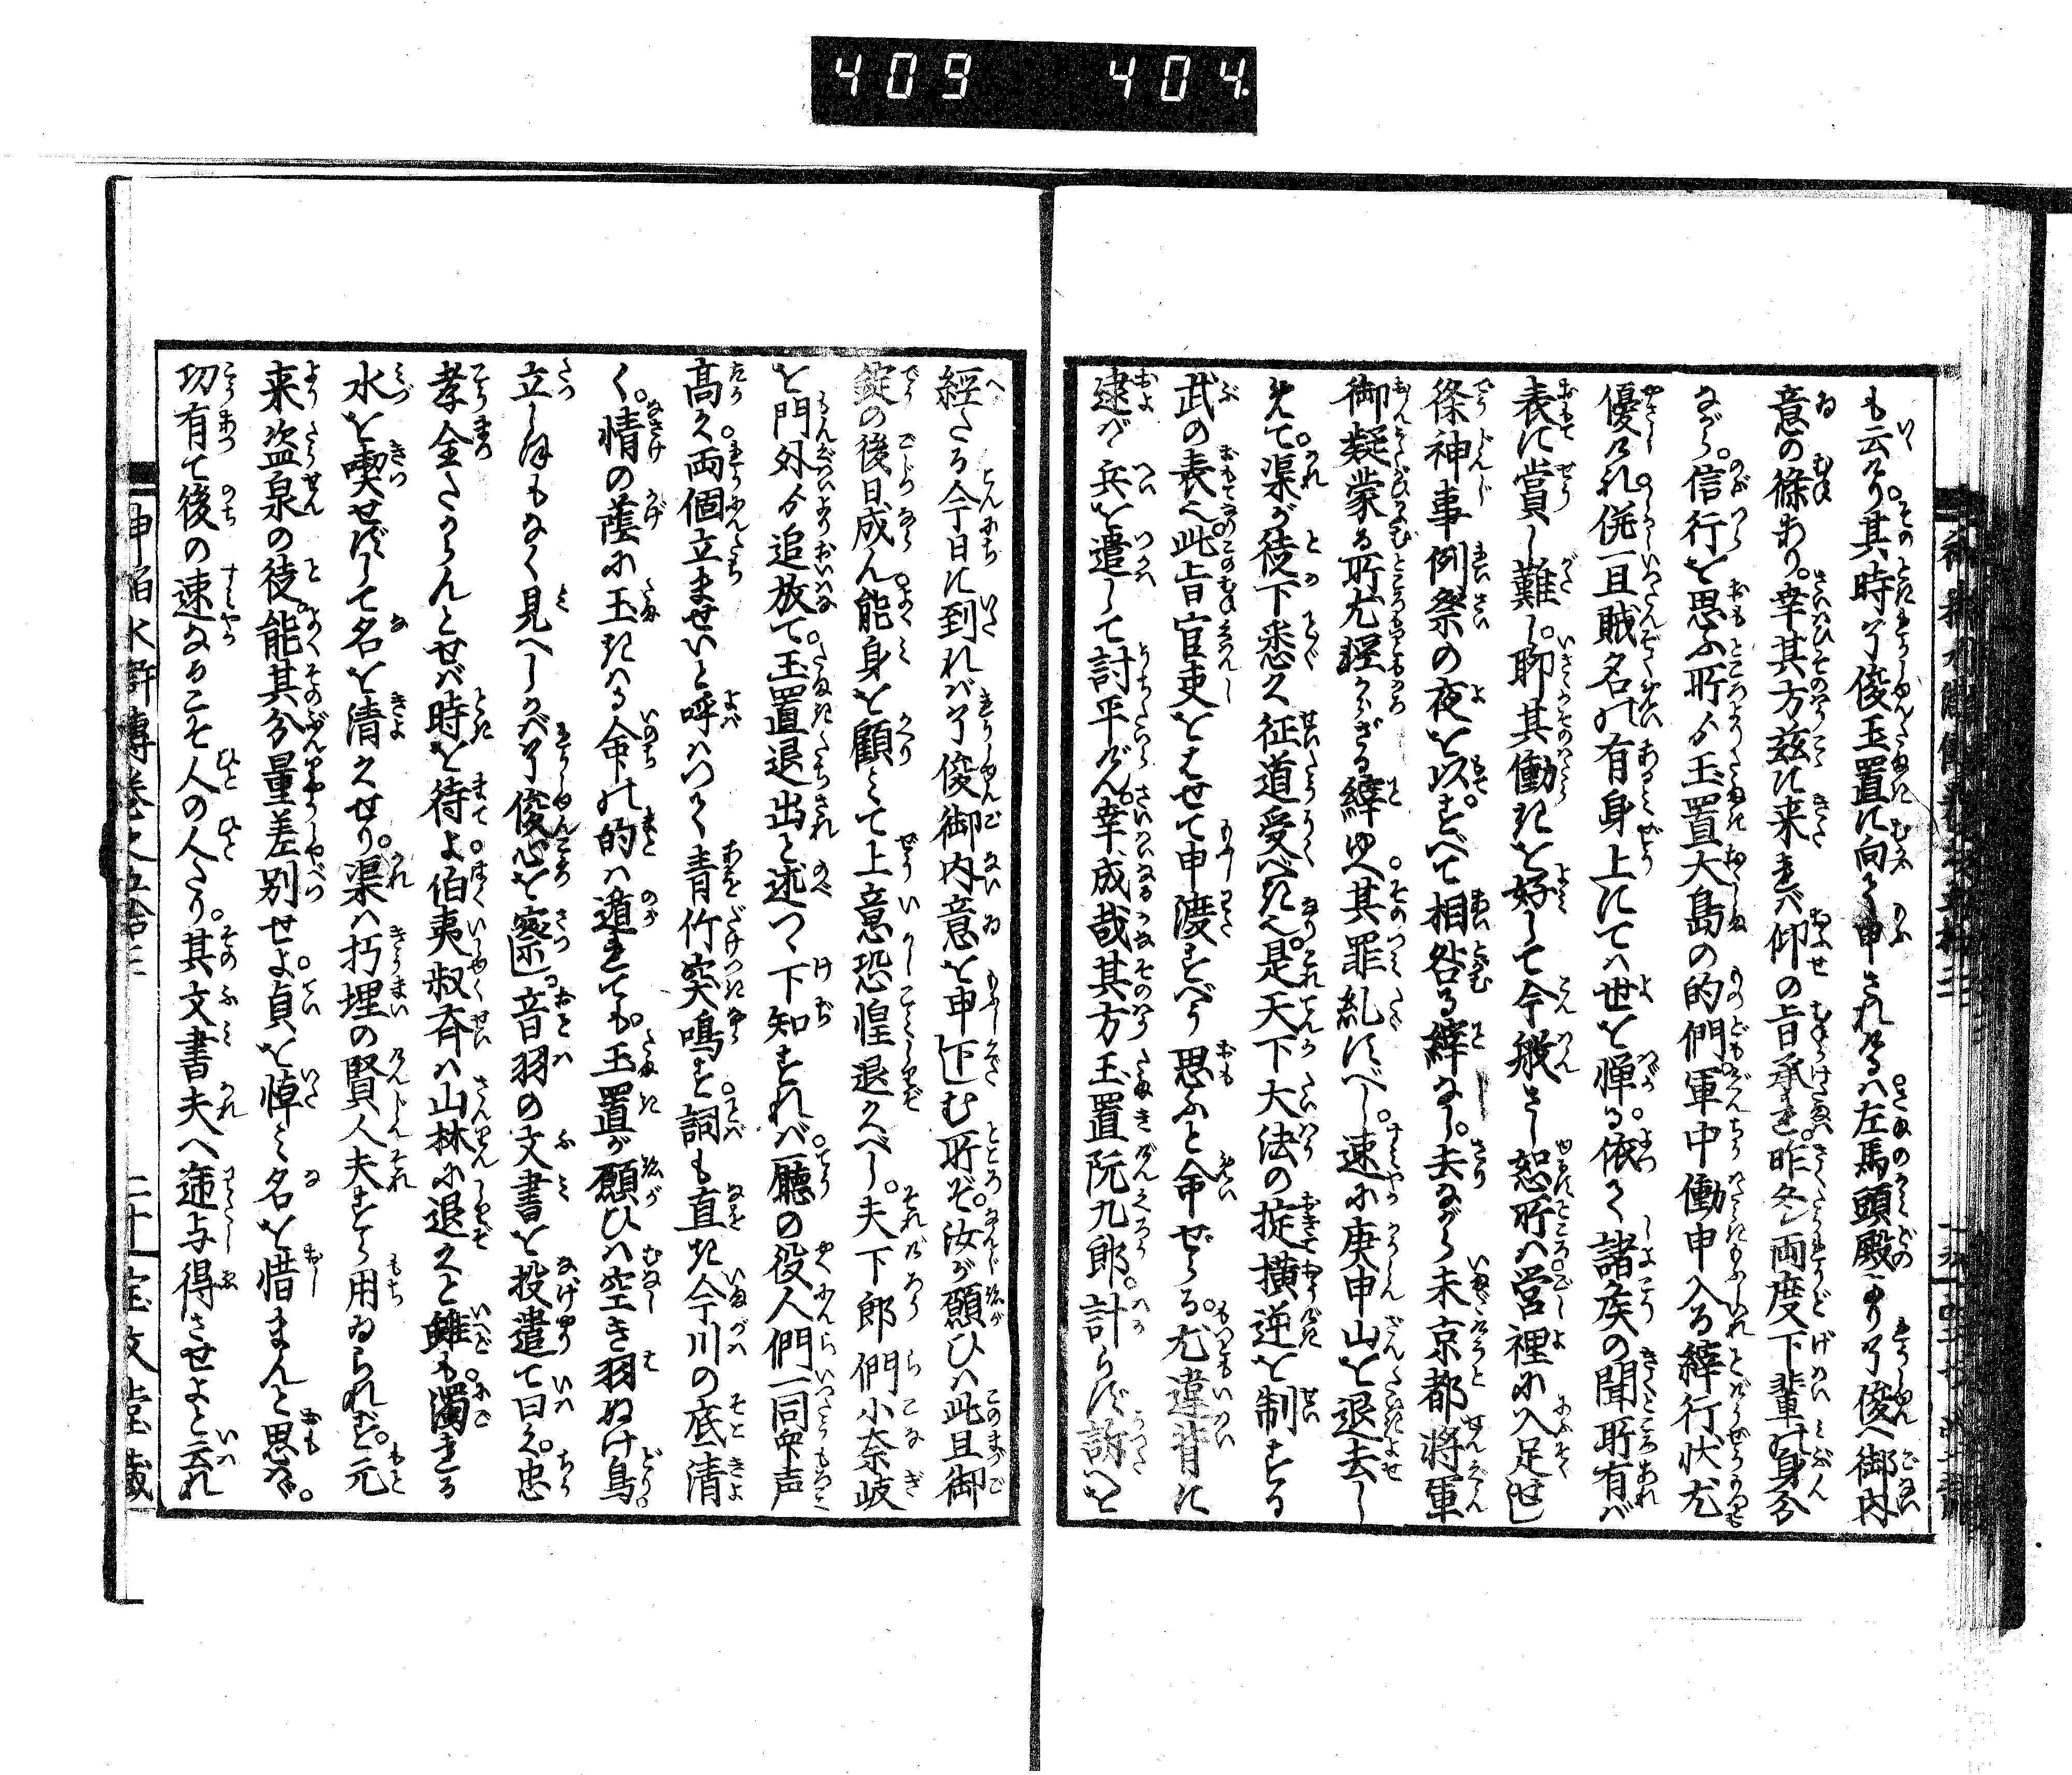 409 404
も云けり。其時了俊玉置に向ひ申されけるハ左馬頭殿より了俊へ御内
意の條あり。幸其方茲に来れバ仰の旨承れ。昨冬両度下輩の身分
ながら。信行を思ふ所より玉置大島の的們軍中働申入る縡行状尤
優けれ併一旦賊名の有身上にてハ世を憚る。依て諸侯の聞所有バ
表に賞し難し。聊其働きを好して今般さし恕所ハ営裡に入足せし
條神事例祭の夜を以。すべて相咎る縡なし。去ながら未京都将軍
御疑蒙る所尤軽からざる縡ゆへ其罪糺すべし。速に庚申山を退去し
て。渠が徒下悉く征道受べき也。是天下大法の掟横逆を制する
武の表也。此旨官吏をして申渡すべう思ふと命ぜらる。尤違背に
逮バ兵を遣して討平げん。幸成哉其方玉置阮九郎。計らず訴へを
經たる今日に到れバ了俊御内意を申下む所ぞ。汝が願ひハ此且御
錠の後日成ん。能身を顧ミて上意恐惶退くべし。夫下郎們小奈岐
を門外より追放て。玉置退出と述つゝ下知すれバ。廳の役人們一同声
高く。両個立ませいと呼ハつゝ青竹突鳴す。詞も直き今川の底清
く。情の蔭に玉きはる命の的ハ遁れても。玉置が願ひハ空き羽ぬけ鳥。
立し海もなく見へしかバ了俊心を察し。音羽の文書を投遣て曰く。忠
孝全たからんとせバ時を待よ。伯夷叔斉ハ山林に退くと雖も。濁れる
水を喫せずして名を清くせり。渠ハ朽埋の賢人夫すら用ゐられず。元
来盗泉の徒。能其分量差別せよ。貞を悼ミ名を惜まんと思ハゞ。
功有て後の速なるこそ人の人たり。其文書夫へ逓与得させよと云れ
水滸傳巻之
二十一
宝文堂蔵